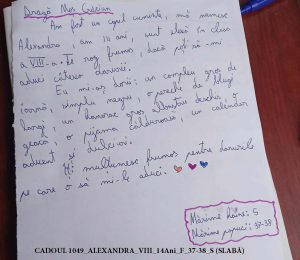 Dragă Moș Crăciun
Am fost un copil cuminte, mă numesc
Alexandra, am 14 ani, sunt elevă în clasa
a VIII-a. Te rog frumos, dacă poți să-mi
aduci câteva daruri.
Eu mi-aș dori: un compleu gros de
iarnă, simplu negru, o pereche de blugi
largi, un hanorac gros albastru deschis, o
geacă, o pijama călduroasă, un calendar
advent și dulciuri.
Îți mulțumesc frumos pentru darurile
pe care o să mi-le aduci.
Mărime haine: S
Mărime papuci: 37-38
CADOUL 1049_ALEXANDRA_VIII_14Ani_F_37-38_S (SLABĂ)